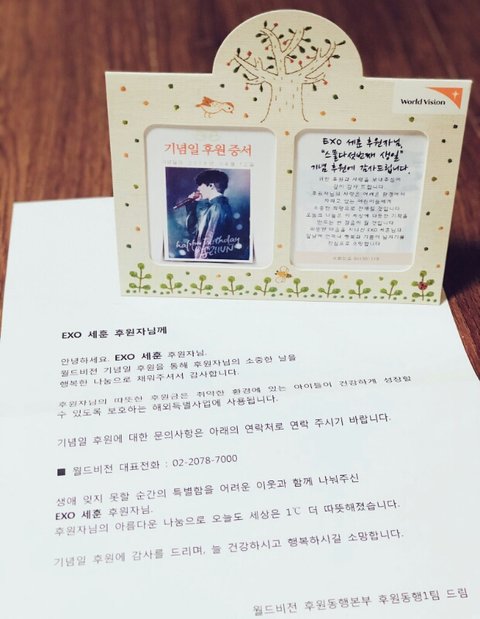 World Vision
기념일 후원 증서
happy birthday
SEHUN
EXO 세훈 후원자님,
"스물다섯번째 생일"
기념 후원에 감사드립니다.
EXO 세훈 후원자님께
안녕하세요. EXO 세훈 후원자님.
월드비전 기념일 후원을 통해 후원자님의 소중한 날을
행복한 나눔으로 채워주셔서 감사합니다.
후원자님의 따뜻한 후원금은 취약한 환경에 있는 아이들이 건강하게 성장할
수 있도록 보호하는 해외특별사업에 사용됩니다.
기념일 후원에 대한 문의사항은 아래의 연락처로 연락 주시기 바랍니다.
■ 월드비전 대표전화 : 02-2078-7000
생애 잊지 못할 순간의 특별함을 어려운 이웃과 함께 나눠주신
EXO 세훈 후원자님.
후원자님의 아름다운 나눔으로 오늘도 세상은 1℃ 더 따뜻해졌습니다.
기념일 후원에 감사를 드리며, 늘 건강하시고 행복하시길 소망합니다.
월드비전 후원동행본부 후원동행1팀 드림